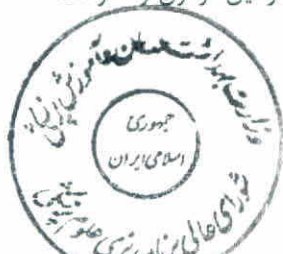 وزارت بهداشت، درمان و آموزش پزشکی
جمهوری
اسلامی ایران
شورای عالی برنامه ریزی علوم پزشکی